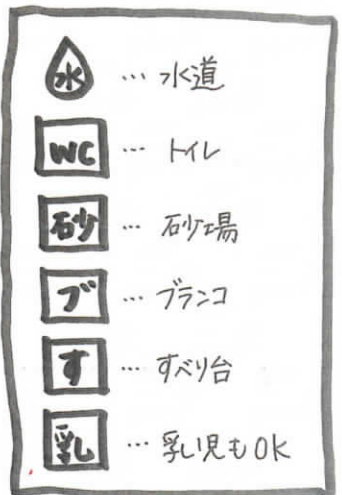 水 … 水道
WC … トイレ
砂 … 砂場
ブ … ブランコ
す … すべり台
乳 … 乳児もOK